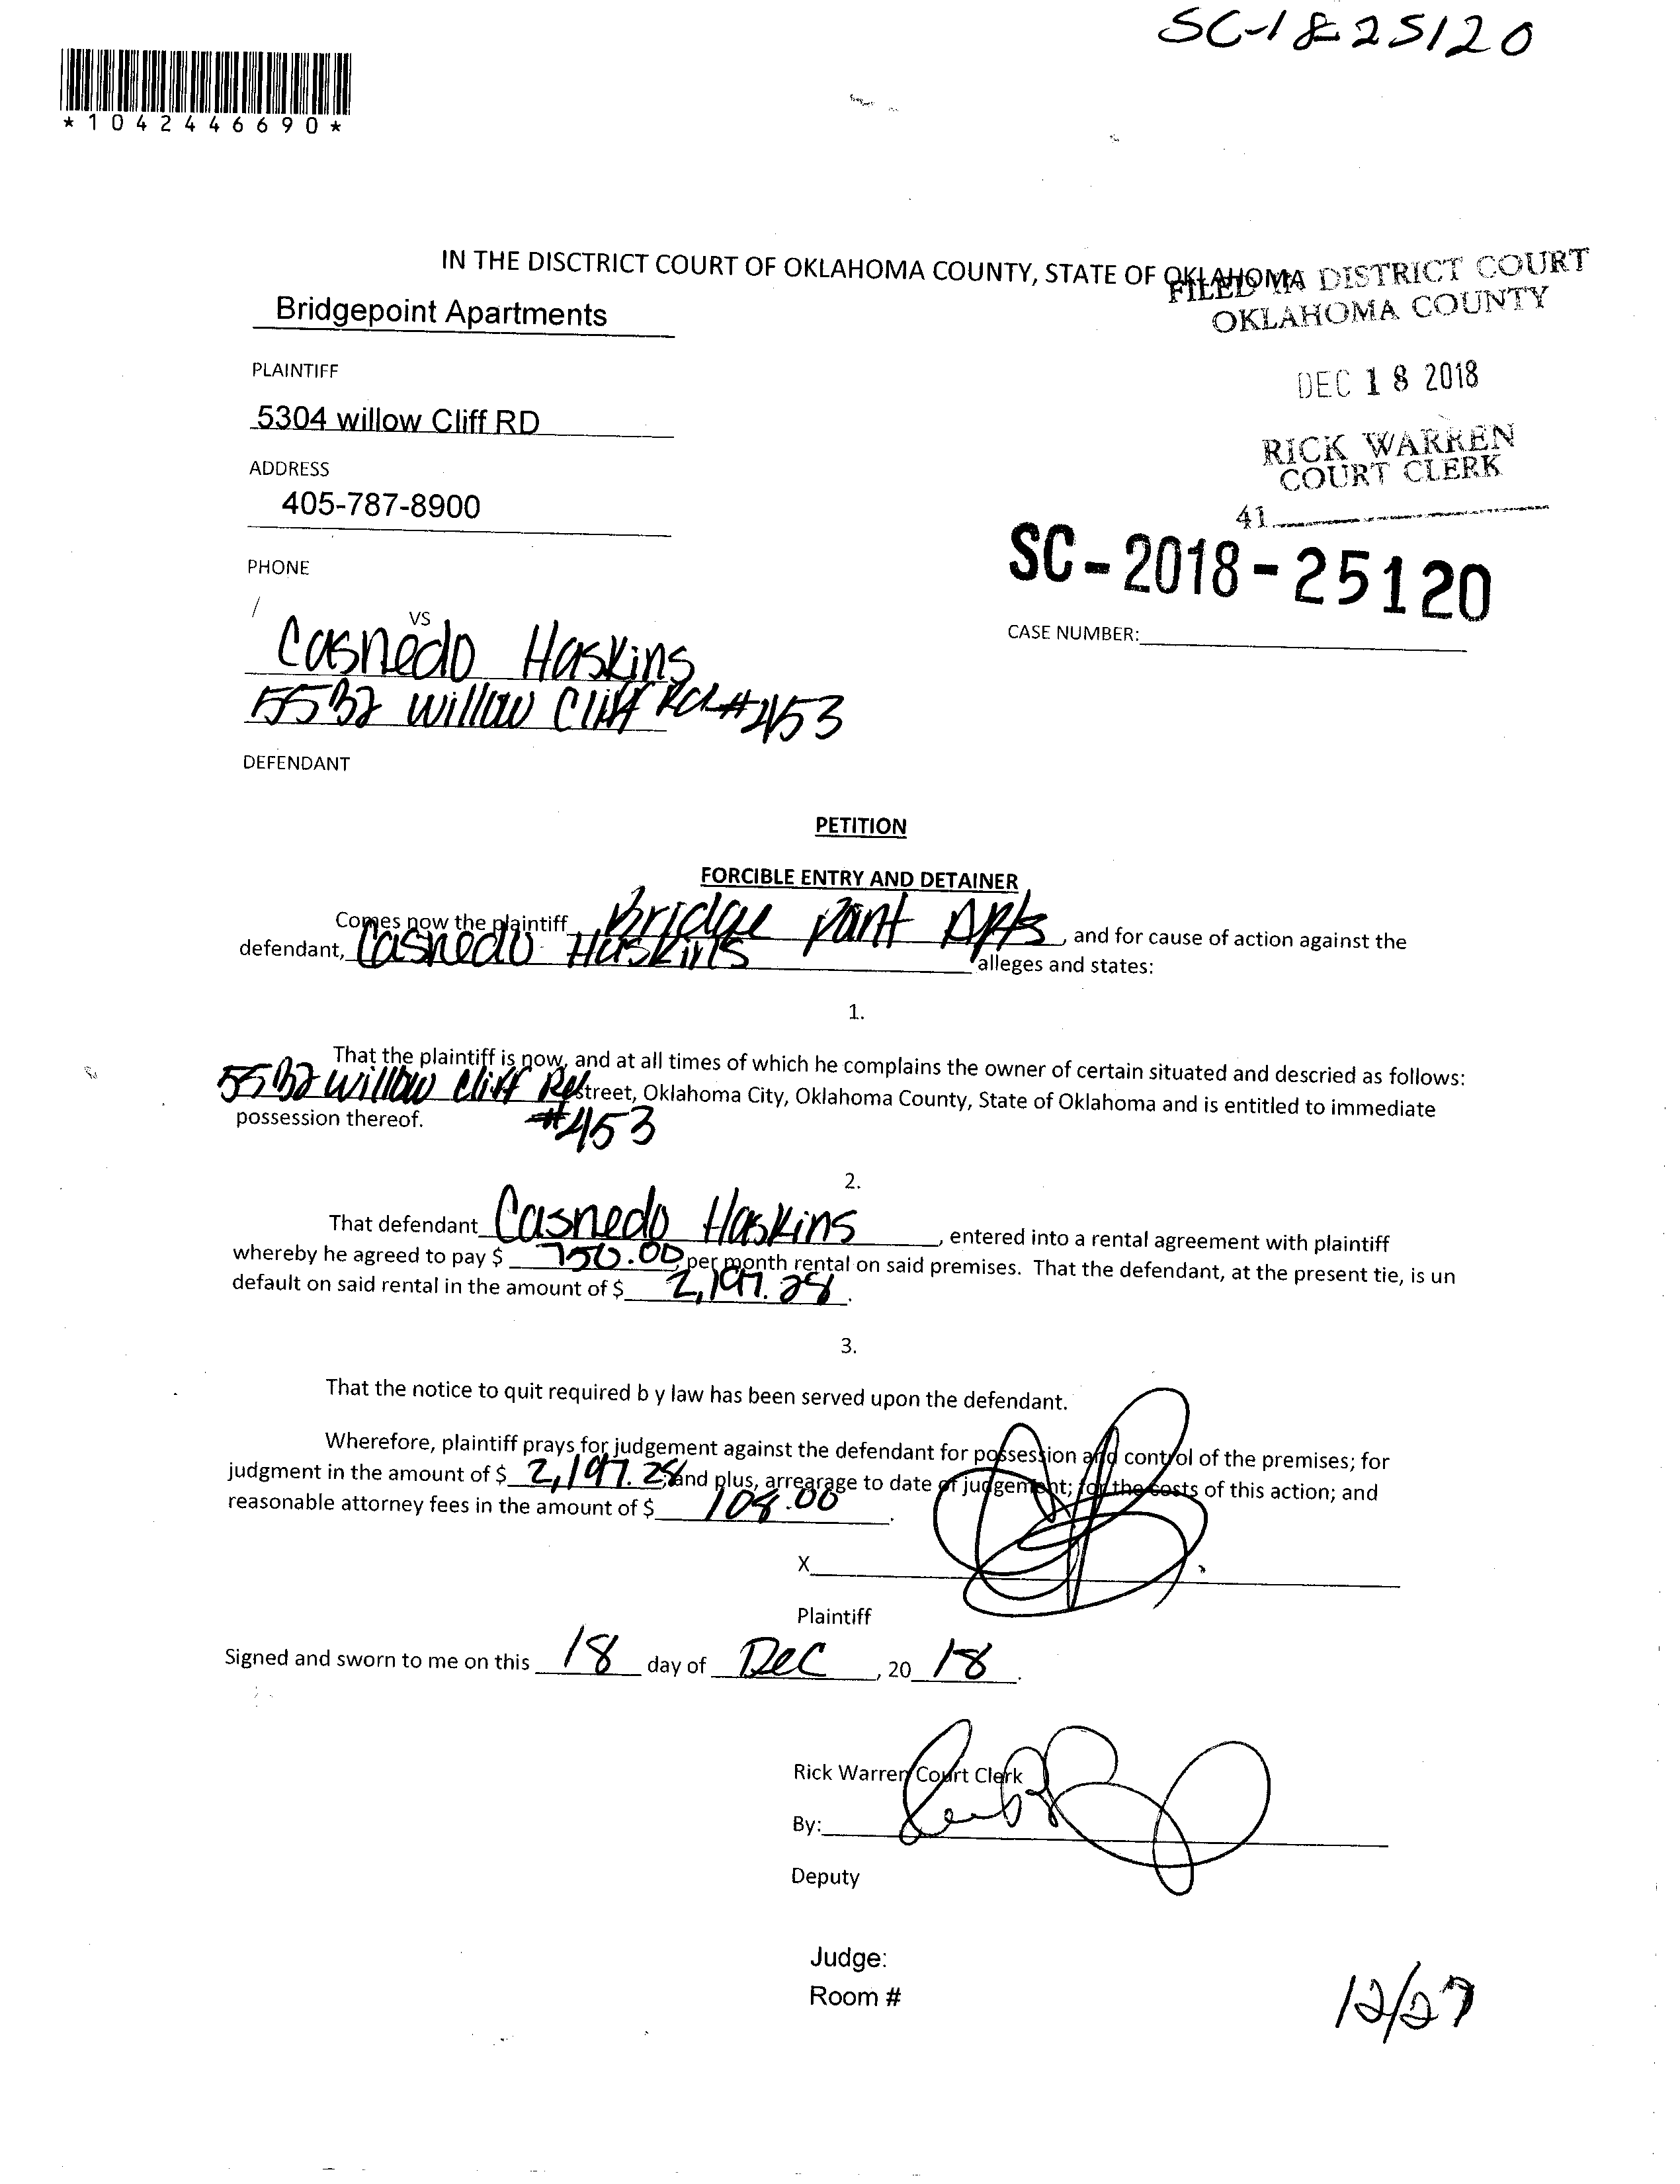 SC-1825120
*1042446690*
IN THE DISCTRICT COURT OF OKLAHOMA COUNTY, STATE OF OKLAHOMA
FILED IN DISTRICT COURT
OKLAHOMA COUNTY
Bridgepoint Apartments
PLAINTIFF
DEC 18 2018
5304 willow Cliff RD
RICK WARREN
COURT CLERK
ADDRESS
405-787-8900
41
PHONE
SC-2018-25120
CASE NUMBER:
/
VS
Casnedo Haskins
5532 Willow Cliff Rd #453
DEFENDANT
PETITION
FORCIBLE ENTRY AND DETAINER
Comes now the plaintiff Bridge Point Apts, and for cause of action against the
defendant, Casnedo Haskins alleges and states:
1.
That the plaintiff is now, and at all times of which he complains the owner of certain situated and descried as follows:
5532 Willow Cliff Rd street, Oklahoma City, Oklahoma County, State of Oklahoma and is entitled to immediate
possession thereof. #453
2.
That defendant Casnedo Haskins, entered into a rental agreement with plaintiff
whereby he agreed to pay $ 750.00, per month rental on said premises. That the defendant, at the present tie, is un
default on said rental in the amount of $ 2,197.28.
3.
That the notice to quit required b y law has been served upon the defendant.
Wherefore, plaintiff prays for judgement against the defendant for possession and control of the premises; for
judgment in the amount of $ 2,197.28 and plus, arrearage to date of judgement; for the costs of this action; and
reasonable attorney fees in the amount of $ 108.00.
X
Plaintiff
Signed and sworn to me on this 18 day of Dec, 20 18.
Rick Warren Court Clerk
By:
Deputy
Judge:
Room #
12/27